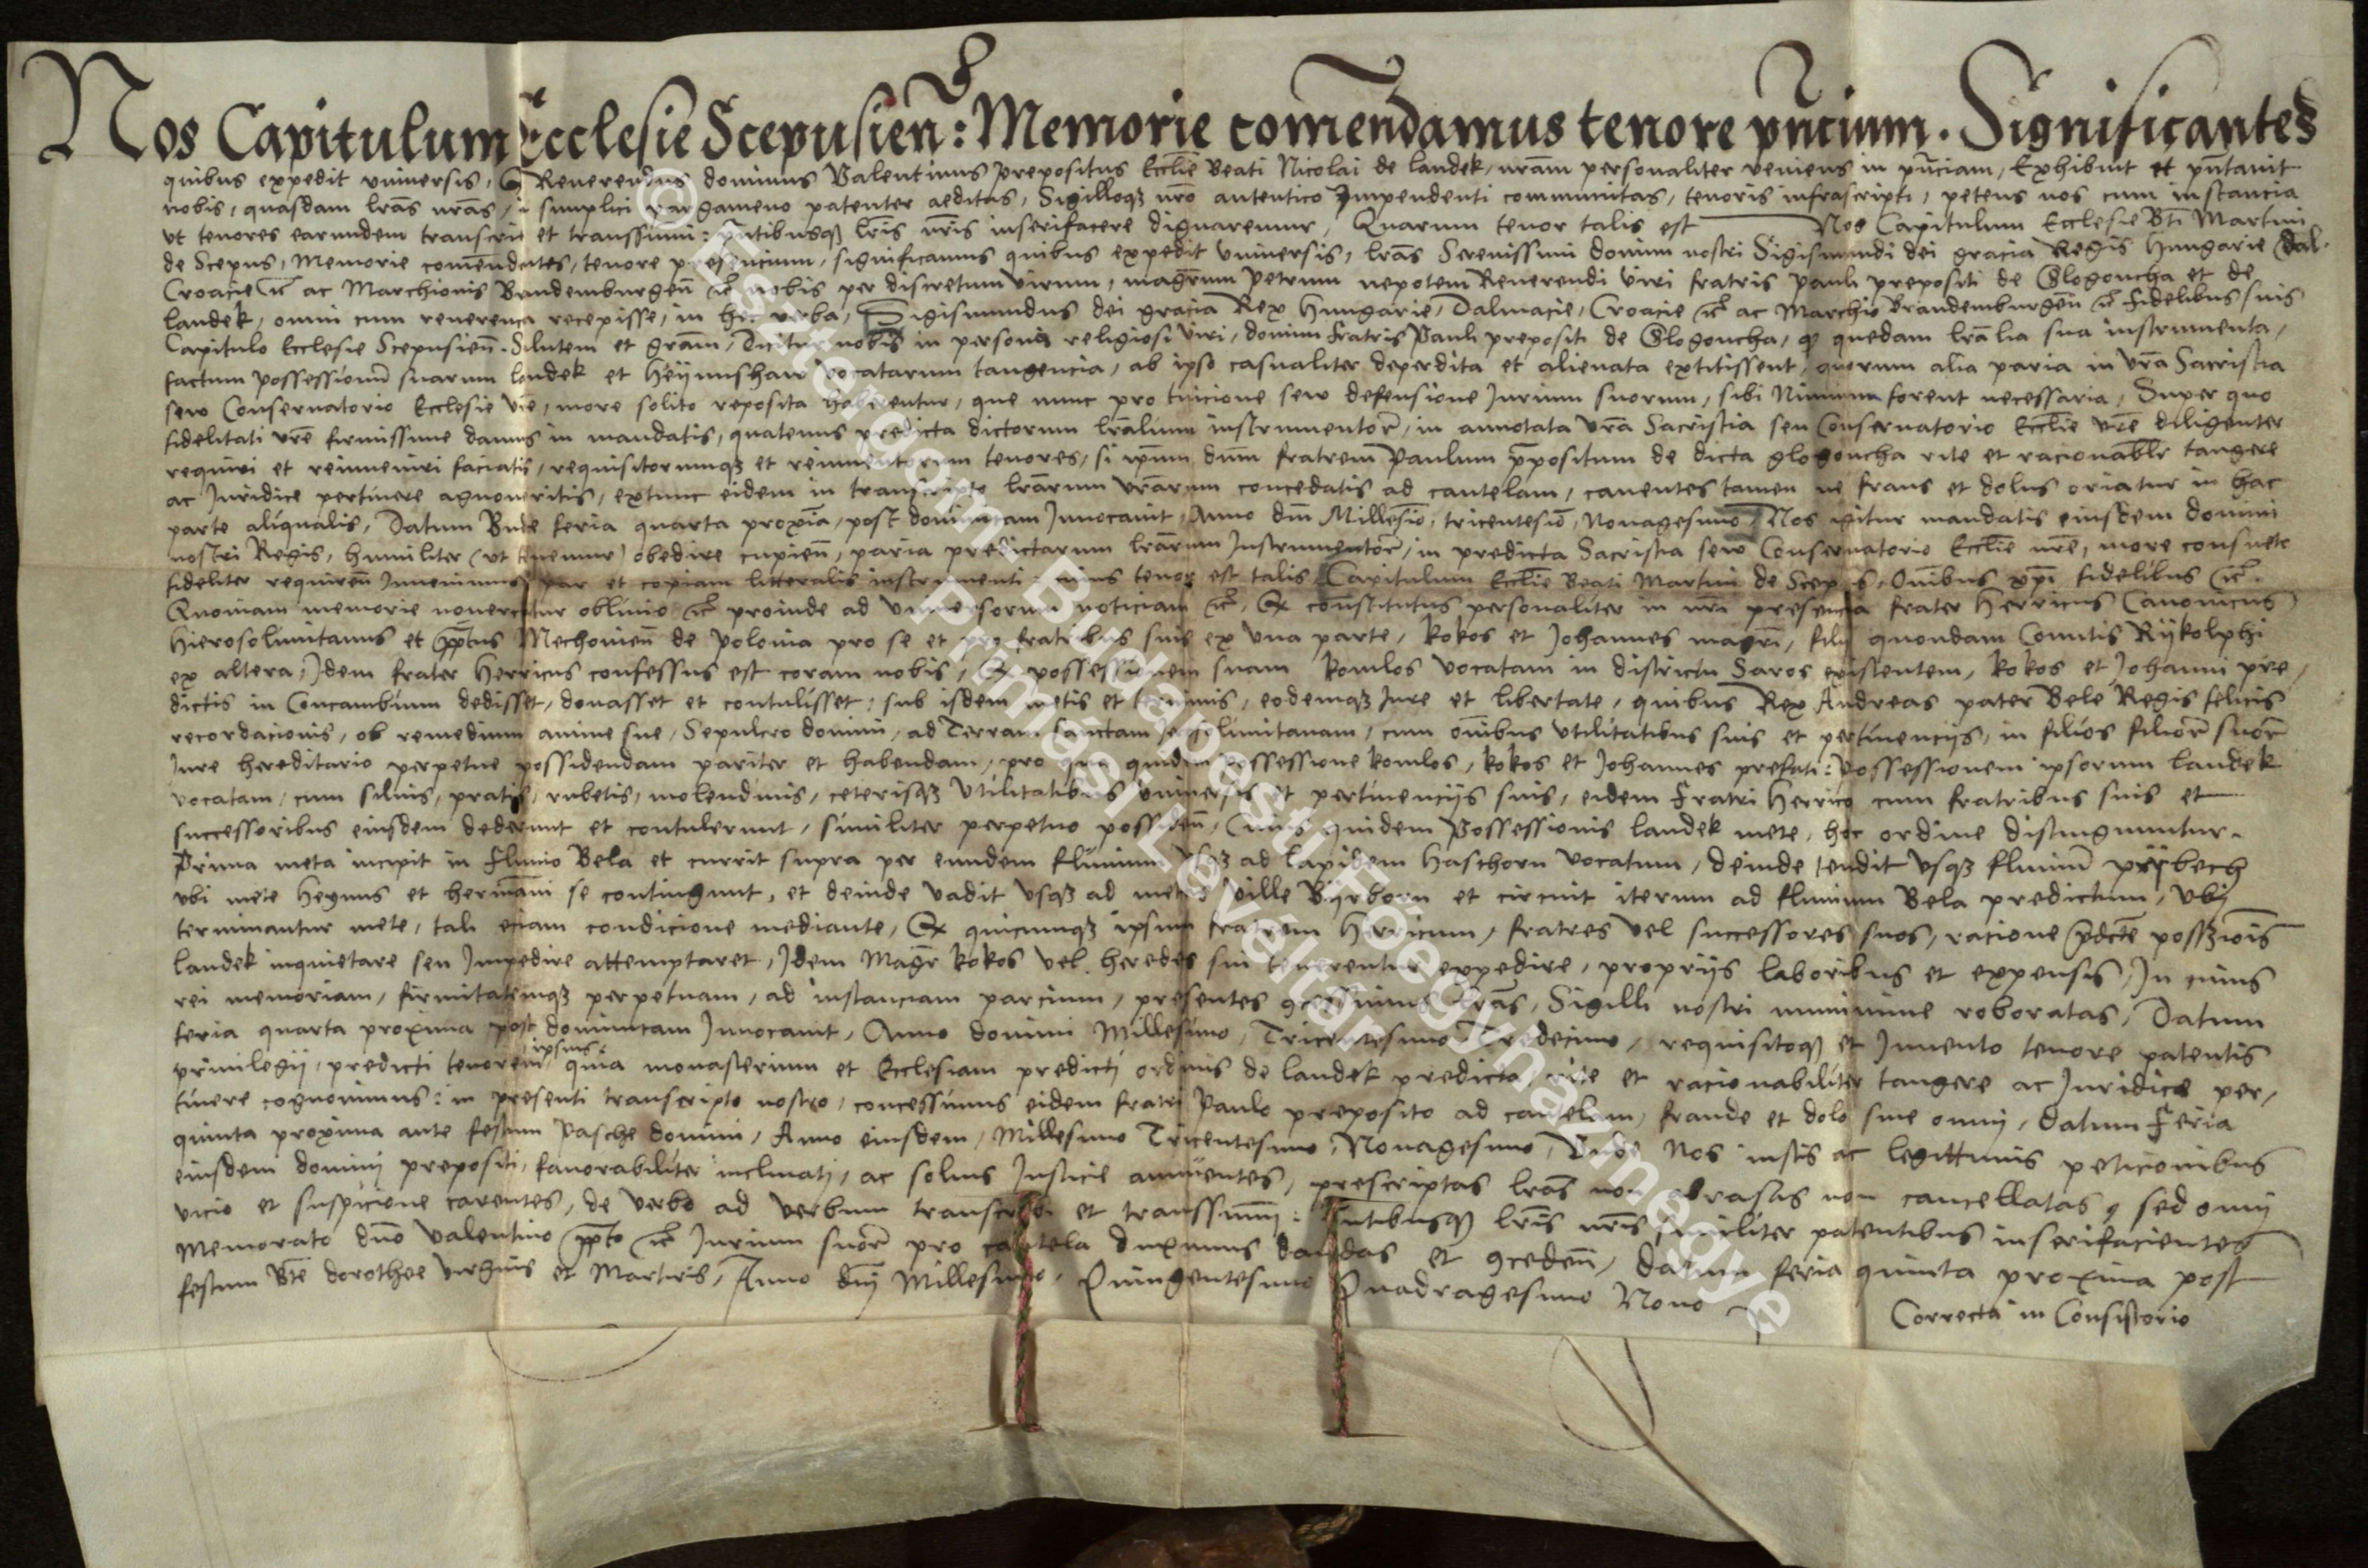 Nos Capitulum Ecclesie Scepusien̄: Memorie com̄endamus tenore pn̄cium. Significantes
quibus expedit vniuersis, Reuerendus dominus Valentinus prepositus Eccłie Beati Nicolai de landek, nr̄am personaliter veniens in pn̄ciam, Exhibuit et pn̄tauit
nobis, quasdam lr̄as nr̄as, simplici pargameno patenter aeditas, Sigilloqꝫ nr̄o autentico Impendenti communitas, tenoris infrascripti, petens nos cum instancia
vt tenores earundem transcribi et transsumi: pn̄tibusqꝫ lr̄is nr̄is inserifacere dignaremur, Quarum tenor talis est Nos Capitulum Ecclesie Bt̄i Martini
de Scepus, Memorie com̄endantes, tenore presencium, significamus quibus expedit vniuersis, lr̄as Serenissimi domini nostri Sigismundi dei gracia Regis Hungarie Dal-
Croacie ac Marchionis Brandemburgen̄ nobis per discretum virum, magr̄um Petrum nepotem Reuerendi viri fratris Pauli prepositi de Glogoncha et de
landek, omni cum reuerencia recepisse, in hec verba, Sigismundus dei gracia Rex Hungarie, Dalmacie, Croacie ac Marchio Brandemburgen̄ fidelibus suis
Capitulo Ecclesie Scepusien̄. Salutem et gr̄am, Dicitur nobis in persona religiosi viri, domini fratris Pauli prepositi de Glogoncha, quedam lr̄alia sua instrumenta,
factum possessionū suarum landek et Heÿnushaw vocatarum tangencia, ab ipso casualiter deperdita et alienata extitissent, quorum alia paria in vr̄a Sacristia
sew Conseruatorio Ecclesie vr̄e, more solito reposita haberentur, que nunc pro tuicione sew defensione Jurium suorum, sibi Nimium forent necessaria, Super quo
fidelitati vr̄e firmissime damus in mandatis, quatenus predicta dictorum lr̄aliū instrumentor̄, in annotata vr̄a Sacristia seu Conseruatorio Eccłie vr̄e diligenter
requiri et reinueniri faciatis, requisitorumqꝫ et reinuentorum tenores, si ip̄um dn̄m fratrem Paulum p̄positum de dicta glogoncha rite et racionablr̄ tangere
ac Juridice pertinere agnoueritis, extunc eidem in transcripto lr̄arum vr̄arum concedatis ad cautelam, cauentes tamen ne fraus et dolus oriatur in hac
parte aliqualis, Datum Bude feria quarta proxīa, post dominicam Inuocauit, Anno dn̄i Millesīo, tricentesīo, Nonagesimo, Nos igitur mandatis eiusdem domini
nostri Regis, humiliter (vt tenemur) obedire cupien̄, paria predictarum lr̄arum Instrumentor̄, in predicta Sacristia sew Conseruatorio Eccłie nr̄e, more consueto
fideliter requiren̄ Inuenimus par et copiam litteralis instrumenti cuius tenor est talis, Capitulum Eccłie Beati Martini de Scepus, Om̄ibus xp̄i fidelibus
Quoniam memorie nouercatur obliuio proinde ad vniuersorum noticiam constitutus personaliter in nr̄i presencia frater Herricus Canonicus
Hierosolimitanus et Mechouien̄ de Polonia pro se et pro fratribus suis ex vna parte, kokos et Johannes magrī, filii quondam Comitis Rÿkolphi
ex altera, Idem frater Herricus confessus est coram nobis, possessionem suam komlos vocatam in districtu Saros existentem, kokos et Johanni pre-
dictis in Concambium dedisset, donasset et contulisset, sub isdem metis et terminis, eodemqꝫ Jure et libertate, quibus Rex Andreas pater Bele Regis felicis
recordacionis, ob remedium anime sue, Sepulcro domini, ad Terram sanctam Jerosolimitanam, cum om̄ibus vtilitatibus suis et pertinencijs, in filios filior̄ suor̄
Jure hereditario perpetue possidendam pariter et habendam, pro qua quidem possessione komlos, kokos et Johannes prefati: possessionem ipsorum landek
vocatam, cum siluis, pratis, rubetis, molendinis, ceterisqꝫ vtilitatibus vniuersis et pertinencijs suis, eidem fratri Herrico cum fratribus suis et
successoribus eiusdem dederunt et contulerunt, similiter perpetuo possiden̄, Cuius quidem Possessionis landek mete, hoc ordine distinguuntur.
Prima meta incipit in fluuio Bela et currit supra per eundem fluuium vsqꝫ ad lapidem Hasthorn vocatum, deinde tendit vsqꝫ fluuiū pÿbech
vbi mete Heynus et hermāni se contingunt, et deinde vadit vsqꝫ ad metas ville Bÿrborn et circuit iterum ad fluuium Bela predictum, vbi
terminantur mete, tali eciam condicione mediante, quicumqꝫ ipsum fratrem Herricum, fratres vel successores suos, racione p̄dicte possessiois
landek inquietare seu Impedire attemptaret, Idem Magr̄ kokos vel heredes sui tenerentur expedire, proprijs laboribus et expensis, In cuius
rei memoriam, firmitatemqꝫ perpetuam, ad instanciam parcium, presentes ꝯcessimus lr̄as, Sigilli nostri munimine roboratas, Datum
feria quarta proxima post dominicam Inuocauit, Anno domini Millesimo, Tricentesimo Tredecimo, requisitoqꝫ et Inuento tenore patentis
priuilegij, predicti tenorem ipsius quia monasterium et Ecclesiam predicti ordinis de landek predicta rite et racionabiliter tangere ac Juridice per-
tinere cognouimus: in presenti transcripto nostro, concessimus eidem fratri Paulo preposito ad cautelam, fraude et dolo sine omni, Datum Feria
quinta proxima ante festum Pasche domini, Anno eiusdem, Millesimo Tricentesimo, Nonagesimo, Vnde Nos iustis ac legittimis peticionibus
eiusdem domini prepositi, fauorabiliter inclinati, ac solius Justicie annuentes, prescriptas lr̄as non abrasas non cancellatas, sed omni
vicio et suspicione carentes, de verbo ad verbum transcribi et transsumi: pn̄tibusqꝫ lr̄is nr̄is similiter patentibus inserifacientes
Memorato dn̄o Valentino Jurium suor̄ pro cautela duximus dandas et ꝯceden̄, datum feria quinta proxima post
festum Bt̄e dorothee virginis et Martiris, Anno dn̄i Millesimo, Quingentesimo Quadragesimo Nono
Correcta in Consistorio
© Esztergom-Budapesti Főegyházmegye
Prímási Levéltár